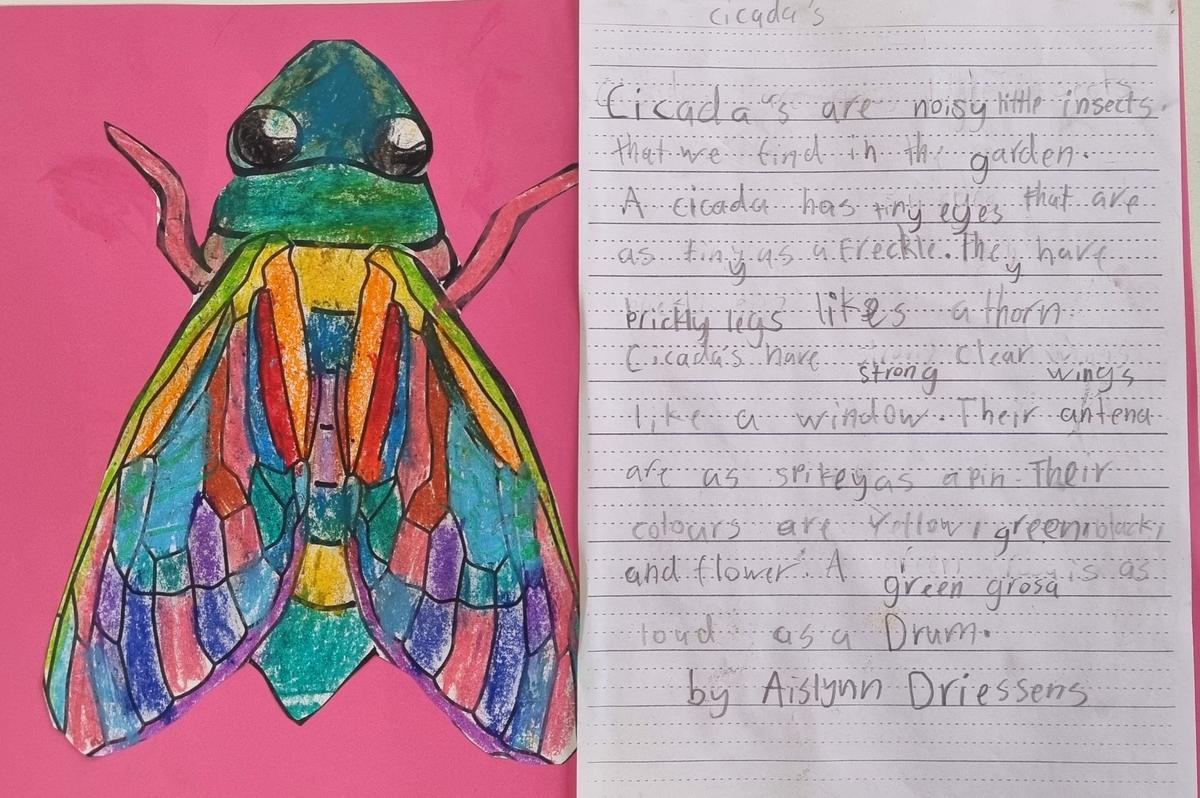 cicada's
Cicada's are noisy little insects.
that we find in the garden.
A cicada has tiny eyes that are
as tiny as a freckle. They have
prickly legs likes a thorn
Cicada's have strong clear wings
like a window. Their antena
are as spikey as a pin. Their
colours are Yellow, green, black,
and flower. A green grosa is as
loud as a Drum.
by Aislynn Driessens